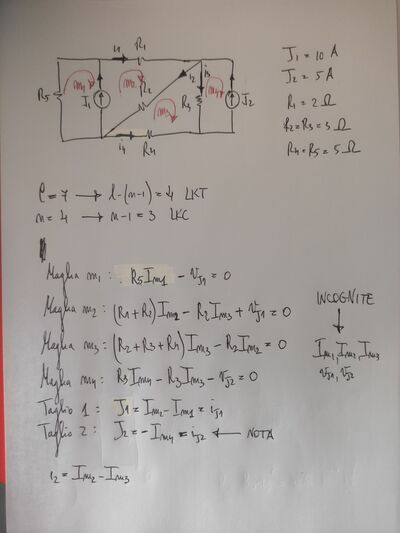 i1 R1
R5 m1 J1 m2 R2 i2 i3 R3 m3 m4 J2
i4 R4
J1 = 10 A
J2 = 5 A
R1 = 2 Ω
R2 = R3 = 3 Ω
R4 = R5 = 5 Ω
l = 7 → l - (n-1) = 4 LKT
n = 4 → n-1 = 3 LKC
Maglia m1: R5 Im1 - vJ1 = 0
Maglia m2: (R1 + R2) Im2 - R2 Im3 + vJ1 = 0
Maglia m3: (R2 + R3 + R4) Im3 - R2 Im2 = 0
Maglia m4: R3 Im4 - R3 Im3 - vJ2 = 0
Taglio 1: J1 = Im2 - Im1 = iJ1
Taglio 2: J2 = - Im4 = iJ2 ← NOTA
i2 = Im2 - Im3
INCOGNITE
↓
Im1, Im2, Im3
vJ1, vJ2